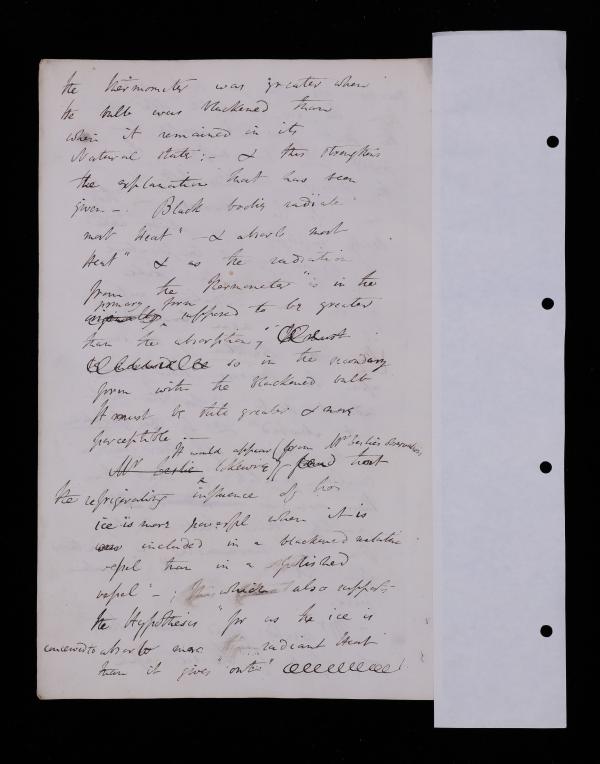 the thermometer was greater when
the bulb was blackened than
when it remained in its
Natural state: – & this strengthens
the explanation that has been
given –. Black bodies radiate
most Heat" – & absorb most
Heat" & as the radiation
from the Thermometer" is in the
primary form
originally supposed to be greater
than the absorption,"
so in the secondary
form with the blackened bulb
It must be still greater & more
perceptible –
It would appear (from Mr Leslies Observations
Mr Leslie likewise) found that
the refrigerating influence of his
ice is more powerful when it is
was included in a blackened metallic
vessel than in a polished
vessel" – ; which also supports
the Hypothesis" for as the ice is
conceived to absorb more radiant Heat
than it gives" out"